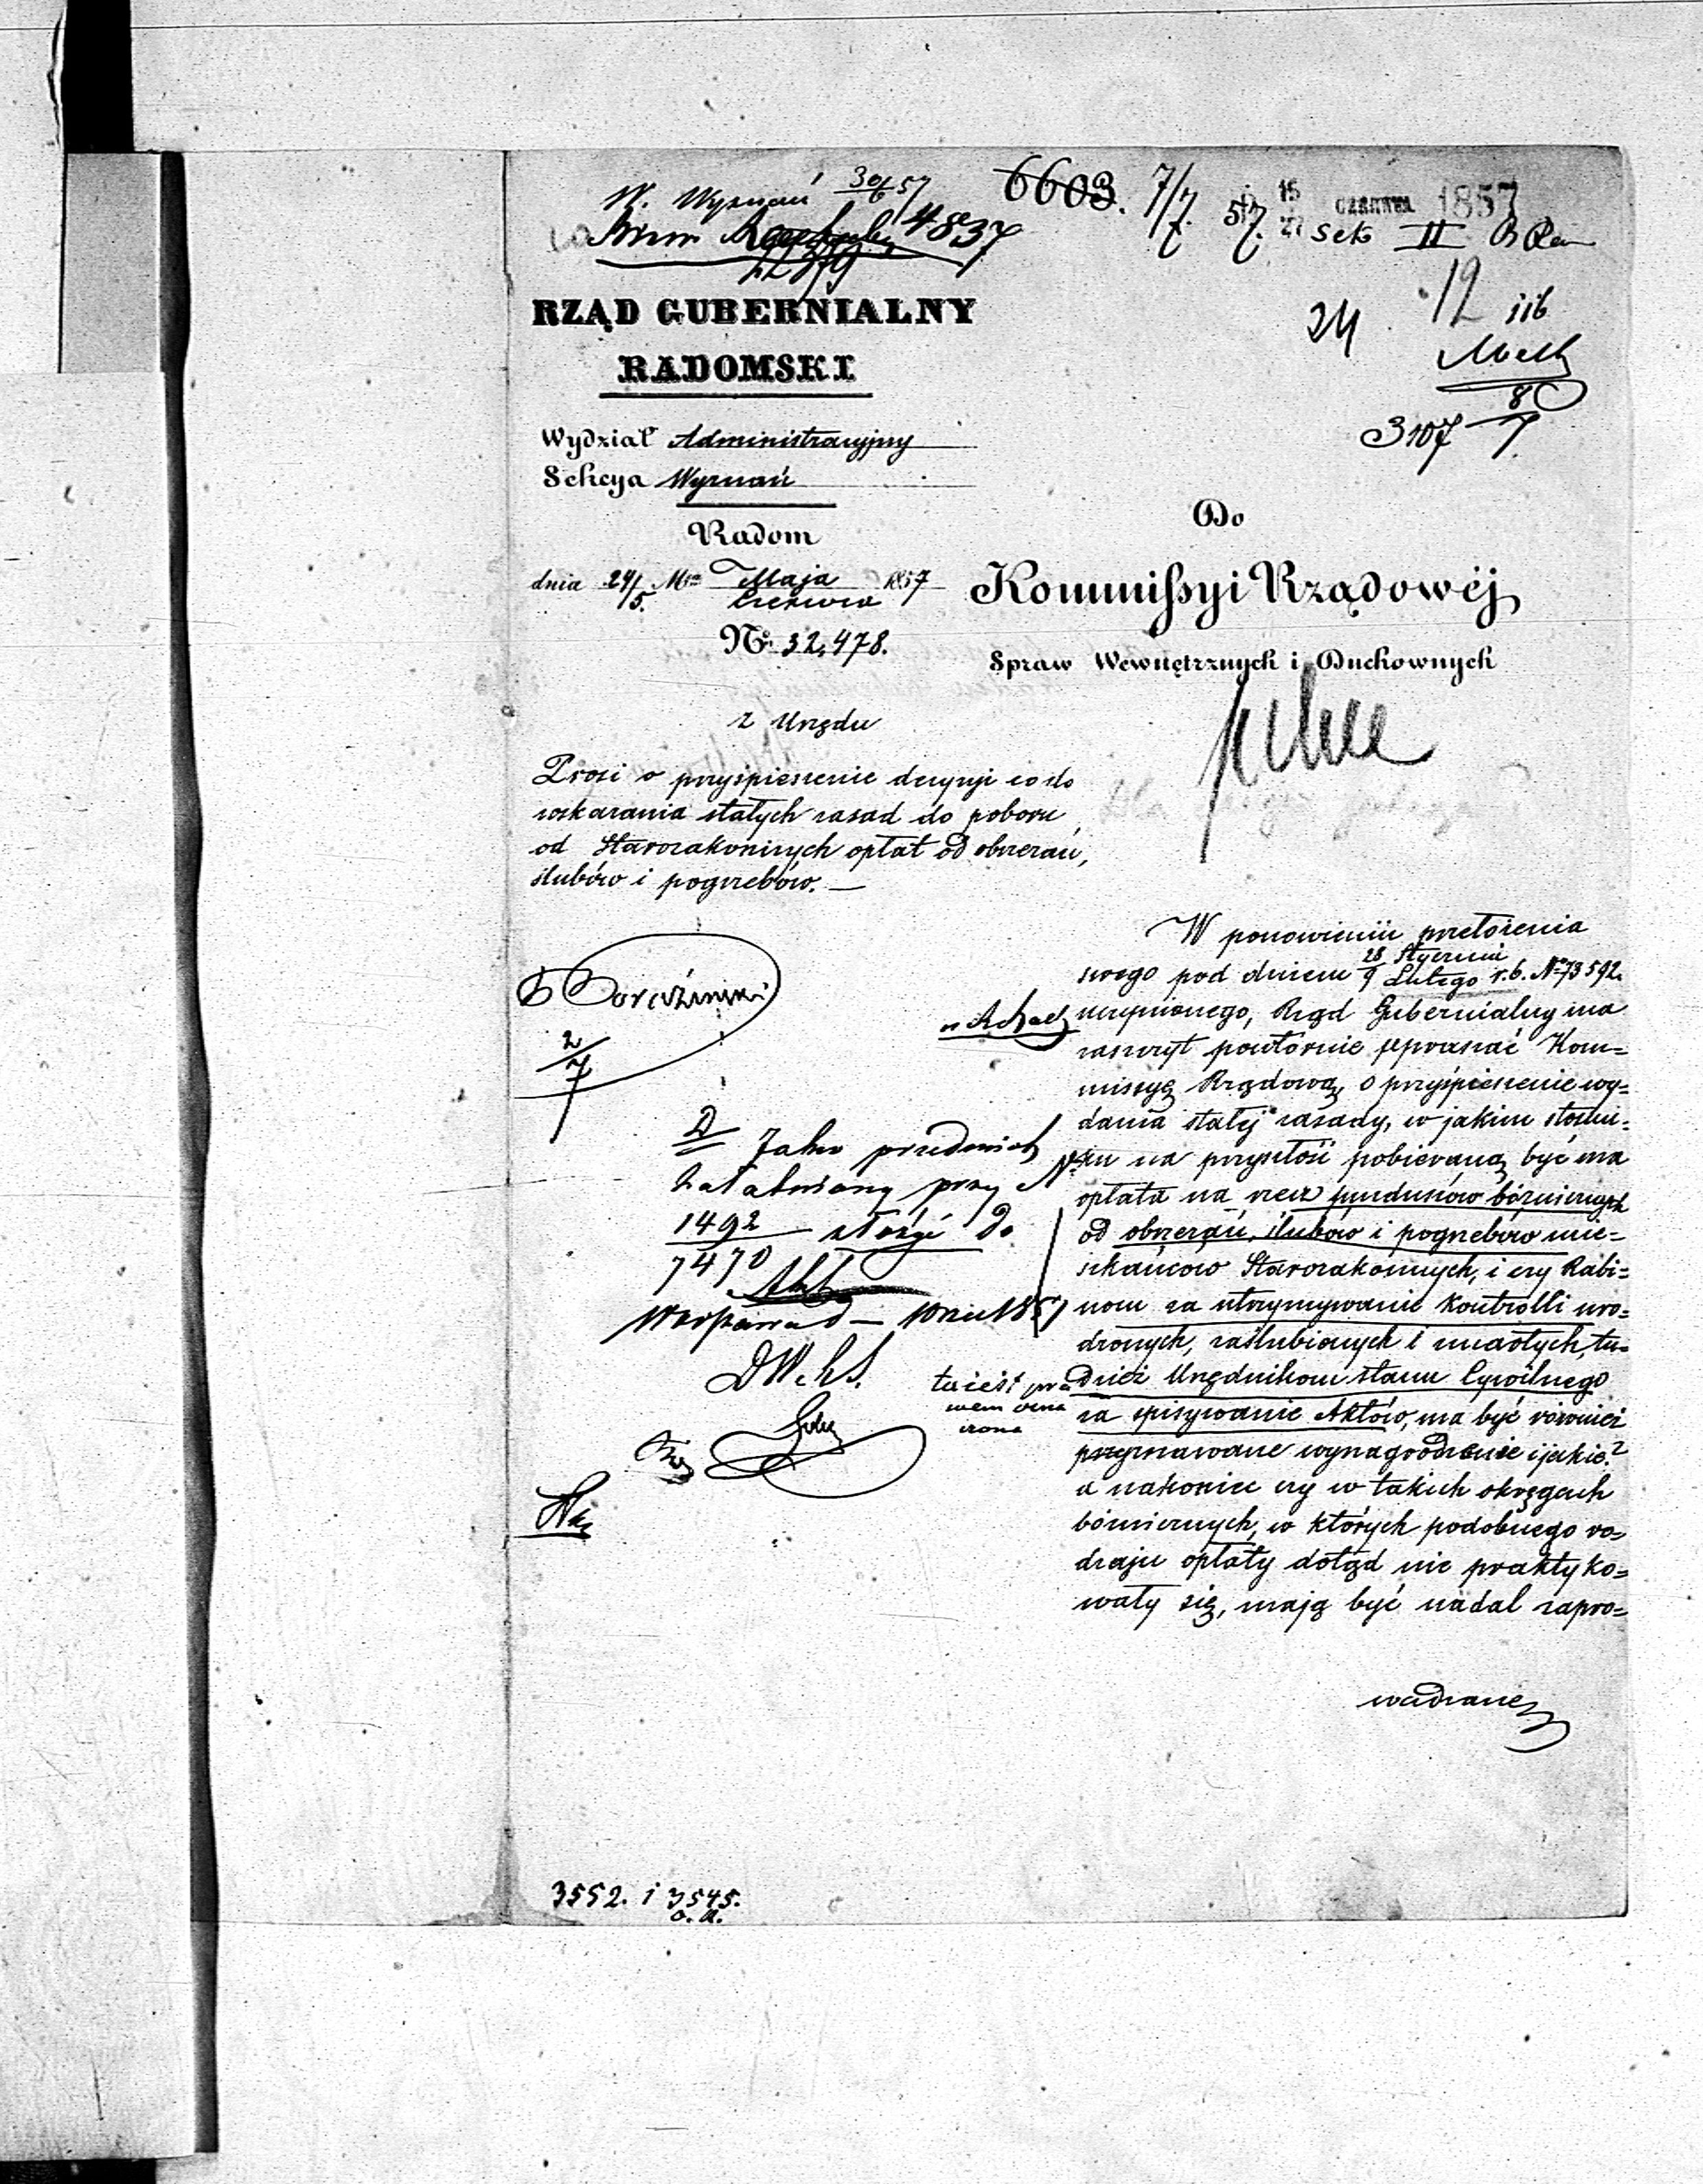 W. Wyznań 30/6 57
4837
6603. 7/7. 57.
15
27 CZERWCA 1857
Sek II
24
12 116
80
3107 7.
RZĄD GUBERNIALNY
RADOMSKI
Wydział Administracyjny
Sekcya Wyznań
Radom
dnia 24/5. Mca Maja
Czerwca 1857
No. 32,478.
Do
Kommissyi Rządowéj
Spraw Wewnętrznych i Duchownych
z Urzędu
Prosi o przyśpieszenie decyzji co do
wskazania stałych zasad do poboru
od Starozakonnych opłat od obrzezań,
ślubów i pogrzebów. —
W ponowieniu przełożenia
swego pod dniem 28 Stycznia
9 Lutego r. b. No 73592.
uczynionego, Rząd Gubernialny ma
zaszczyt powtórnie upraszać Kom=
missyę Rządową, o przyśpieszenie wy=
dania stałej zasady, w jakim stosun=
ku na przyszłość pobieraną być ma
opłata na rzecz funduszów bóżniczych
od obrzezań, ślubów i pogrzebów mie=
szkańców Starozakonnych, i czy Rabi=
nom za utrzymywanie kontrolli uro=
dzonych, zaślubionych i zmarłych, tu=
dzież Urzędnikom stanu Cywilnego
za spisywanie Aktów, ma być również
przyznawane wynagrodzenie i jakie?
a nakoniec czy w takich okręgach
bóżniczych, w których podobnego ro=
dzaju opłaty dotąd nie praktyko=
wały się, mają być nadal zapro=
wadzane
2/7
D Jako przedmiot
załatwiony przy No
1492
7470 złożyć do
Akt
DW. k S.
to jest pra
wem ozna
czone
3552. i 3545.
o. a.